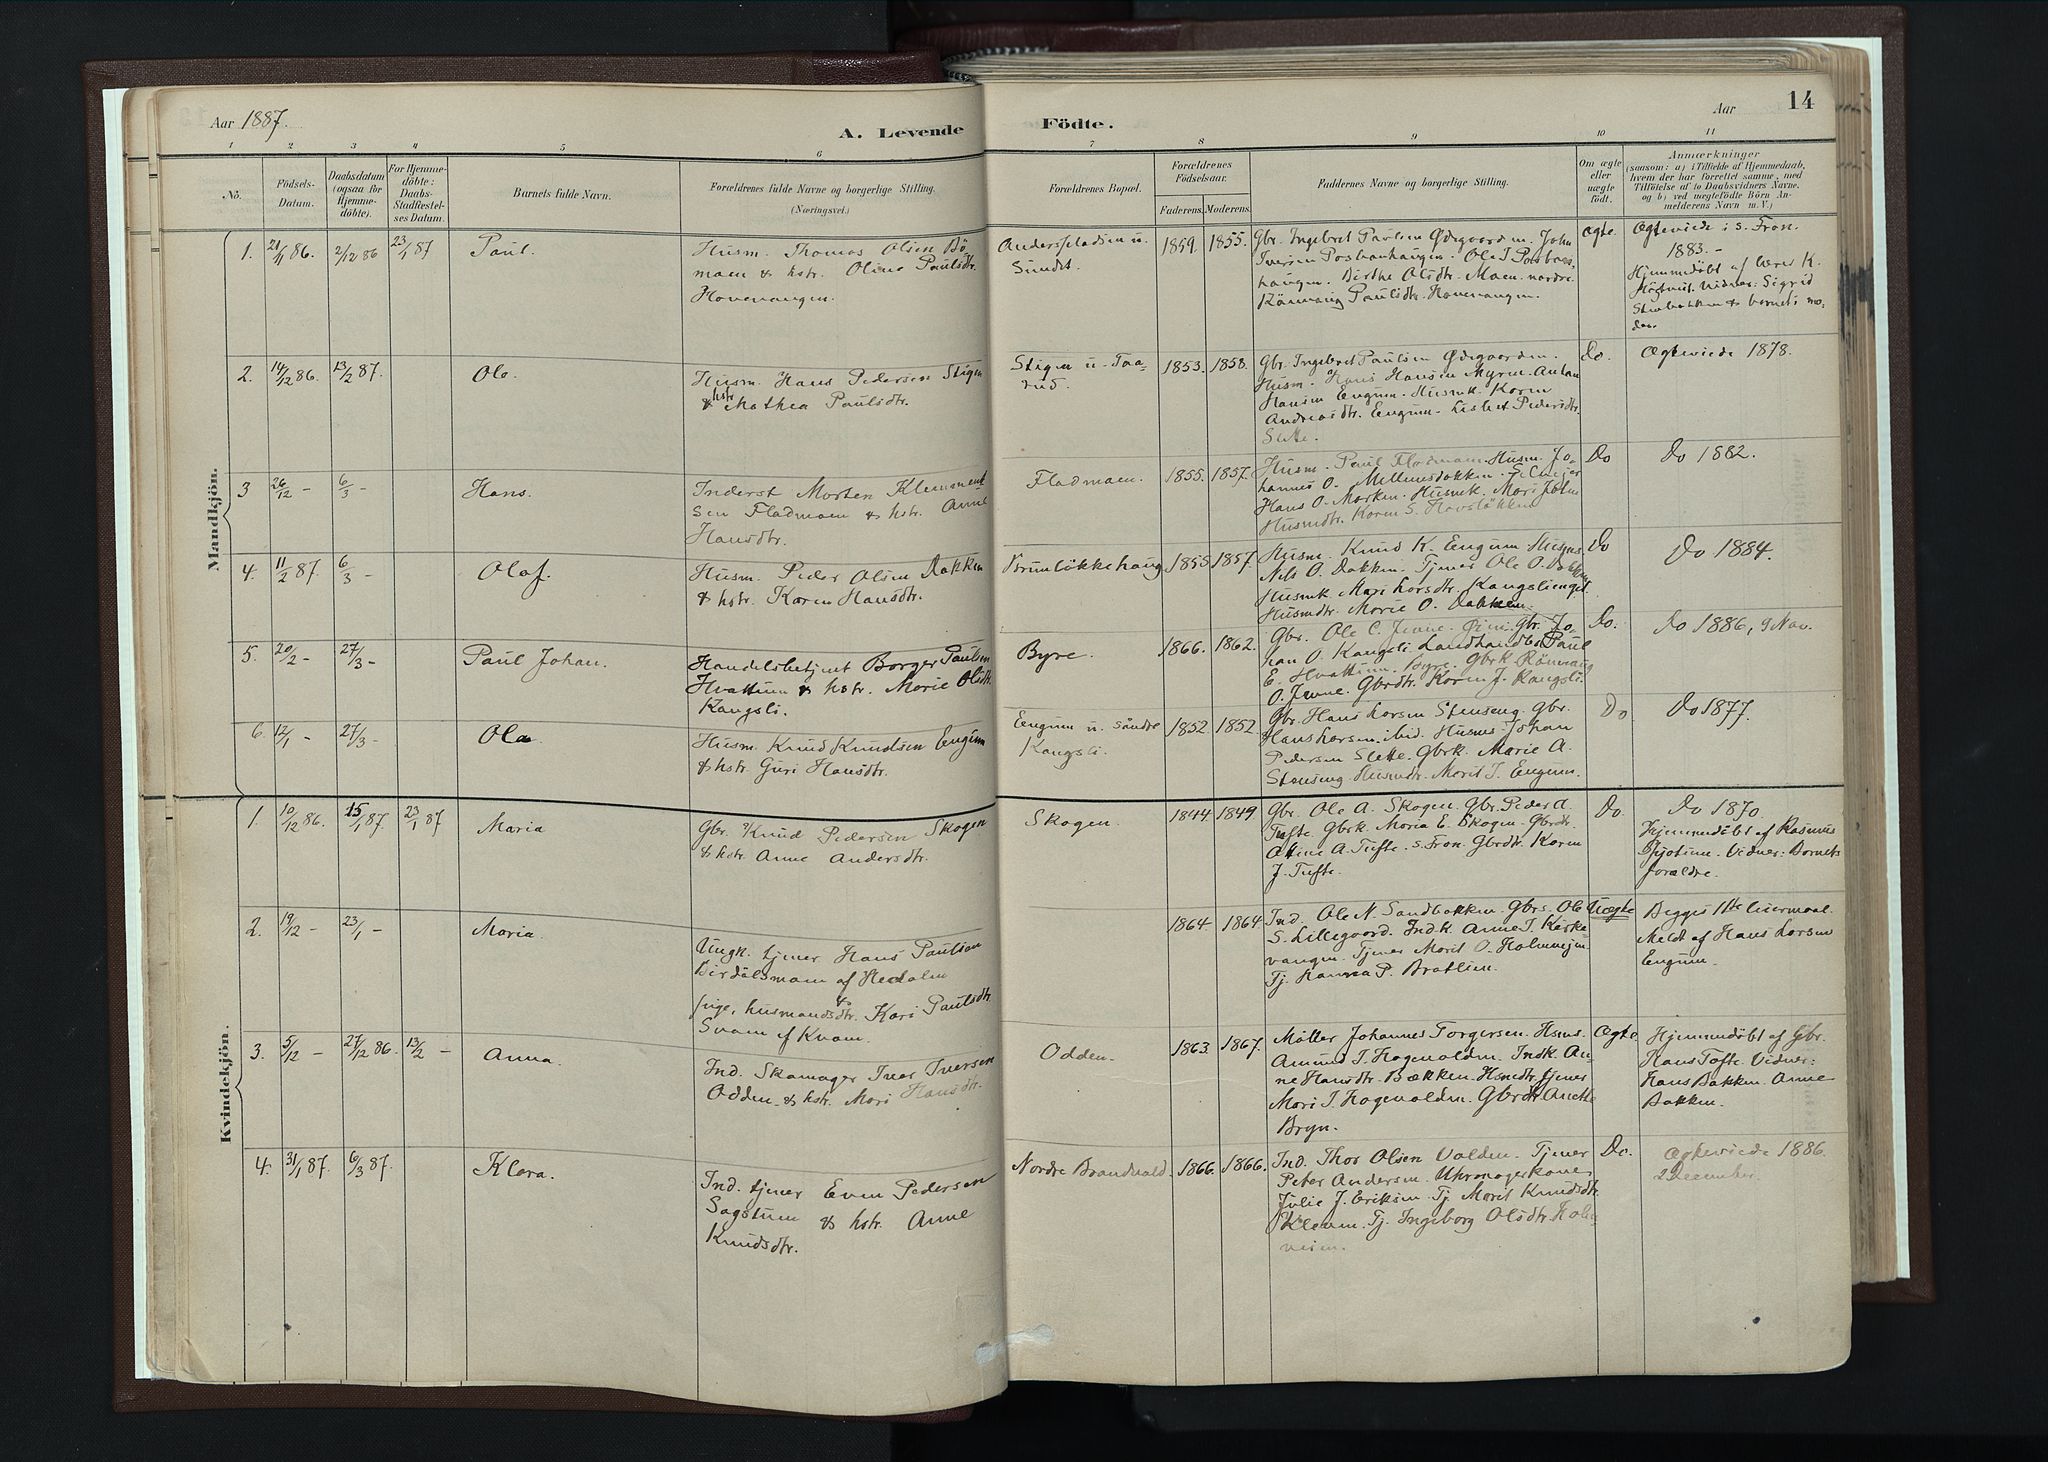 Aar 1887.
A. Levende Födte.
Aar
14
1 2 3 4 5 6 7 8 9 10 11
No.
Födsels-
Datum.
Daabsdatum
(ogsaa for
Hjemme-
döbte).
For Hjemme-
döbte:
Daabs-
Stadfæstel-
ses Datum.
Barnets fulde Navn.
Forældrenes fulde Navne og borgerlige Stilling.
(Næringsvei.)
Forældrenes Bopæl.
Forældrenes
Födselsaar.
Faderens. Moderens.
Faddernes Navne og borgerlige Stilling.
Om ægte
eller
uægte
födt.
Anmærkninger
(saasom: a) i Tilfælde af Hjemmedaab,
hvem der har forrettet samme, med
Tilföielse af to Daabsvidners Navne,
og b) ved uægtefödte Börn An-
melderens Navn m. V.)
Mandkjön.
1. 21/11 86. 2/12 86 23/1 87 Paul.
Husm. Thomas Olsen Bö-
moen & hstr. Oline Paulsdtr.
Hovevangen.
Sundet.
1859. 1855.
Gbr. Ingebret Paulsen Ödegaarden. John
Iversen
Olsdtr. Moen nordre.
Rönnaug Paulsdtr. Hovevangen.
ægte.
Ægteviede i S. Fron.
1883. -
Hjemmedöbt af lærer K.
Vidner: Sigrid
& barnets mo-
der.
2. 14/12 86. 13/2 87. Ole.
Husm. Hans Pedersen Stigen
& hstr Mathea Paulsdtr.
Stigen u. Taa-
rud.
1853. 1858.
Gbr. Ingebret Paulsen Ödegaarden.
Husm. Hans Hansen Myren. Anton
Hansen Engum. Husmk. Karen
Andreasdtr. Engum. Lisbet Pedersdtr.
Slette.
Do.
Ægteviede 1878.
3 26/12 - 6/3 - Hans.
Inderst Morten Klemmet-
sen Fladmoen & hstr. Anne
Hansdtr.
Fladmoen.
1855. 1857.
Husm. Paul Fladmoen. Husm. Jo-
hannes O.
Hans O. Marken. Husmk. Mari
Husmdtr. Karen S.
Do
Do 1882.
4. 11/2 87. 6/3 - Olaf.
Husm. Peder Olsen Bakken
& hstr. Karen Hansdtr.
Brunlökkehaug
1855 1857.
Husm. Knud K. Engum. Husms.
Nils O. Bakken. Tjener Ole O. Bakken
Husmk. Mari Larsdtr. Kangslienget.
Husmdtr. Marie O. Bakken.
Do
Do 1884.
5. 20/2 - 27/3 - Paul Johan.
Handelsbetjent Borger Paulsen
Hvattum & hstr. Marie Olsdtr.
Kangsli.
Byre.
1866. 1862.
Gbr. Ole C. Jevne. Öien. Gbr. Jo-
han O. Kangsli. Landhandler Paul
E. Hvattum. Byre. Gbrk. Rönnaug
O. Jevne. Gbrdtr. Karen J. Kangsli.
Do.
Do 1886, 9 Nov.
6. 12/1 - 27/3 - Ole.
Husm. Knud Knudsen Engum
& hstr. Guri Hansdtr.
Engum u. söndre
Kangsli.
1852. 1852.
Gbr. Hans Larsen Stenseng. Gbr.
Hans Larsen. ibid. Husms. Johan
Pedersen Slette. Gbrk. Marie A.
Stenseng. Husmdtr. Marit I. Engum.
Do
Do 1877.
Kvindekjön.
1. 10/12 86. 15/1 87. 23/1 87 Maria
Gbr. Knud Pedersen Skogen
& hstr. Anne Andersdtr.
Skogen.
1844 1849
Gbr. Ole A. Skogen. Gbr. Peder A.
Tufte. Gbrk. Maria E. Skogen. Gbrdtr.
Oline A. Tufte. S. Fron. Gbrdtr. Karen
J. Tufte.
Do.
Do 1870.
Hjemmedöbt af Rasmus
Vidner: Barnets
forældre.
2. 19/12 - 23/1 - Maria.
Ungk. tjener Hans Paulsen
af Hedalen
& pige, husmandsdtr. Kari Paulsdtr.
Svarn af Kvam.
1864. 1864.
Ind. Ole N. Sandbakken. Gbrs. Ole
S. Lillegaard. Indk. Anne J. Kirke-
vangen. Tjener Marit O.
Tj. Hanna P. Bratlien.
Uægte
Begges 1ste leiermaal.
Meldt af Hans Larsen
Engum.
3. 5/12 - 27/12 86. 13/2 - Anna.
Ind. Skomager Iver Iversen
Odden & hstr. Mari Hansdtr.
Odden.
1863. 1867.
Möller Johannes Torgersen. Hsms.
Amund I. Hagevolden. Indk. An-
ne Hansdtr. Bækken. Hsmdtr. tjener
Mari I. Hagevolden. Gbrdtr. Anette
Bryn.
Ægte
Hjemmedöbt af Gbr.
Hans Tofte. Vidner:
Hans Bakken. Anne
Bakken.
4. 31/1 87. 6/3 87. Klara.
Ind. tjener Even Pedersen
Sagstuen & hstr. Anne
Knudsdtr.
Nordre Brandvold.
1866. 1866.
Ind. Thor Olsen Volden. Tjener
Peter Andersen. Uhrmagerkone
Julie J. Eriksen. Tj. Marit Knudsdtr.
Kleven. Tj. Ingeborg Olsdtr.
Do.
Ægteviede 1886.
2 December.